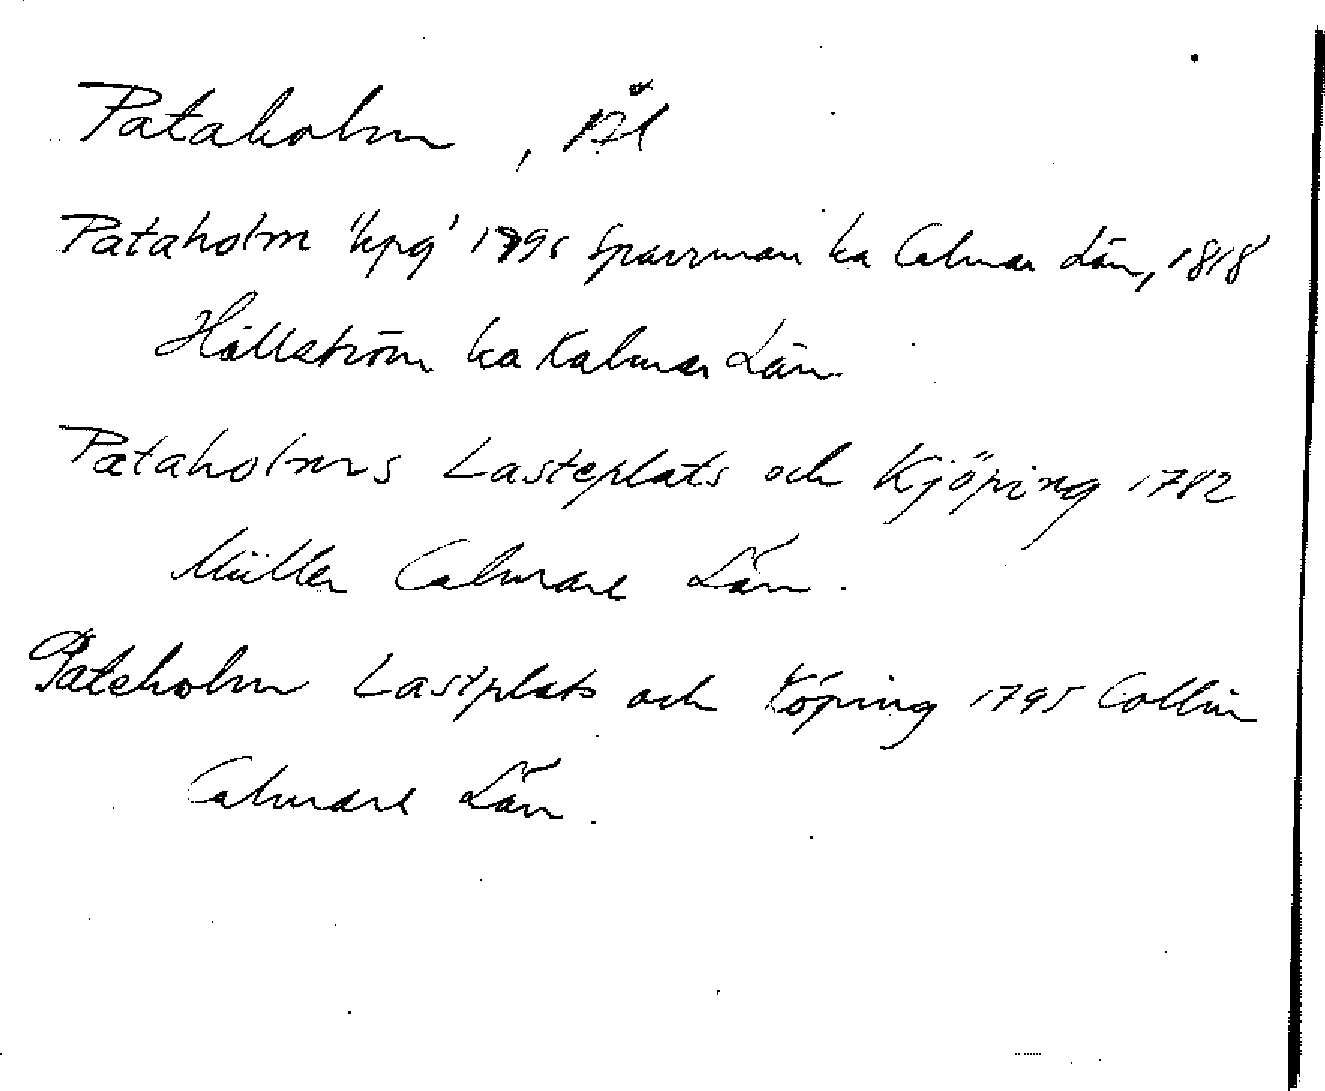 Pataholm, Ål
Pataholm 'kpg' 1795 Sparrman ka Calmar Län, 1818
Hällström ka Kalmar Län
Pataholms Lasteplats och Kjöping 1782
Müller Calmare Län.
Pateholm Lastplats och Köping 1795 Collin
Calmare Län.